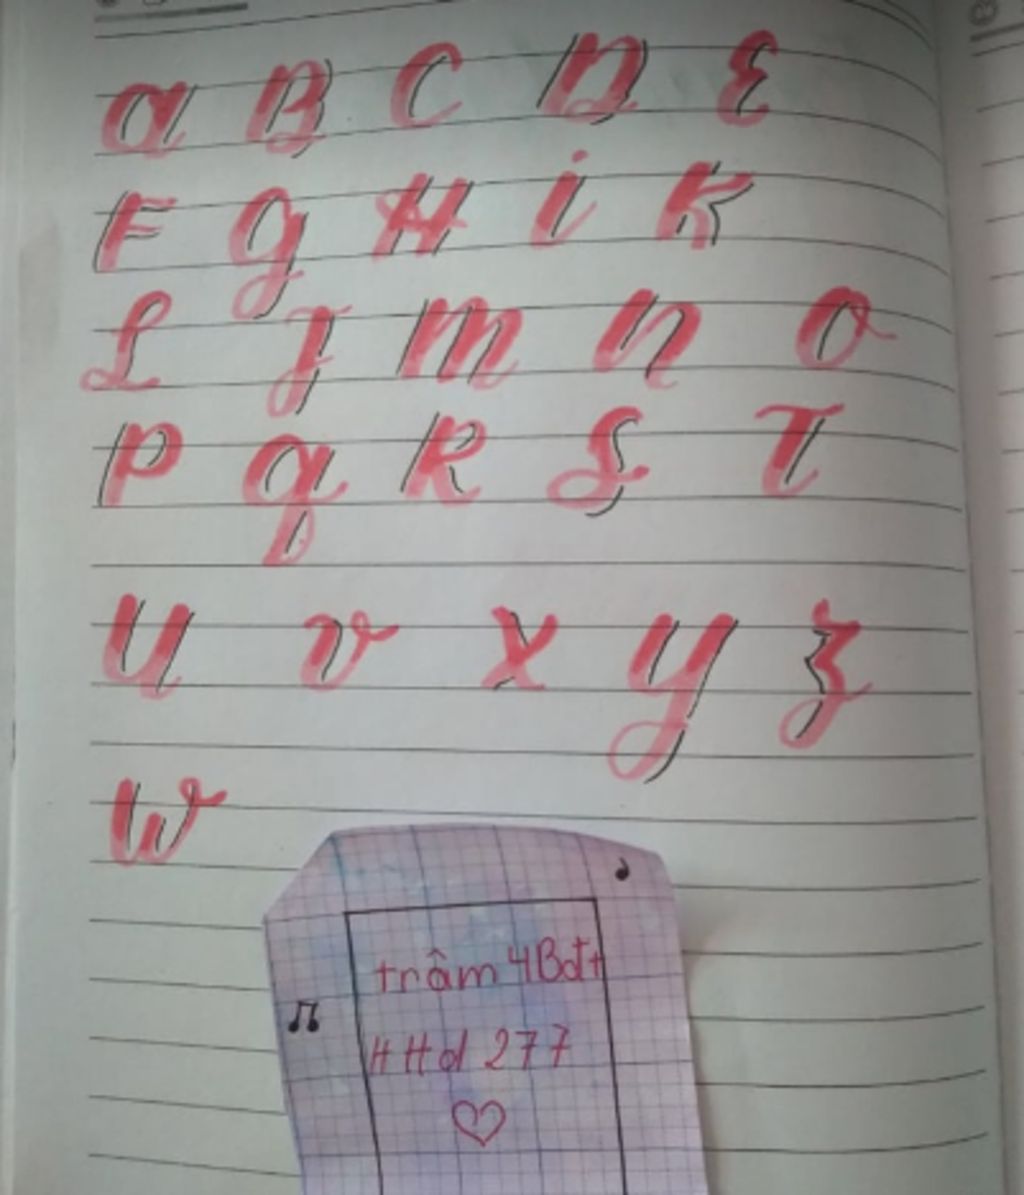 a B C D E
F g H i K
L J m n o
P q R S T
U v x y z
w
trâm 4Bđt
HHd 277